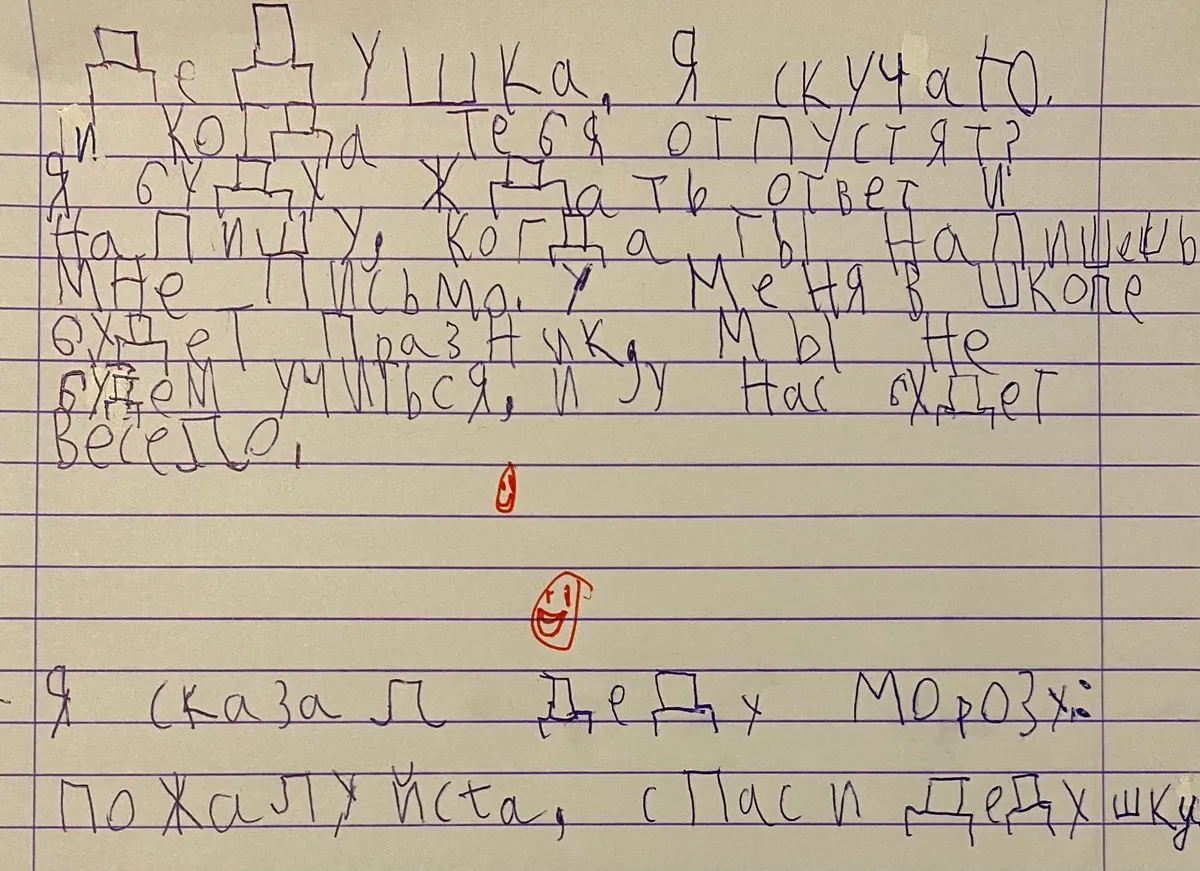 Дедушка, я скучаю.
и когда тебя отпустят?
я буду ждать ответ и
напишу, когда ты напишешь
мне письмо. у меня в школе
будет праздник, мы не
будем учиться, и у нас будет
весело.
я сказал деду морозу:
пожалуйста, спаси дедушку